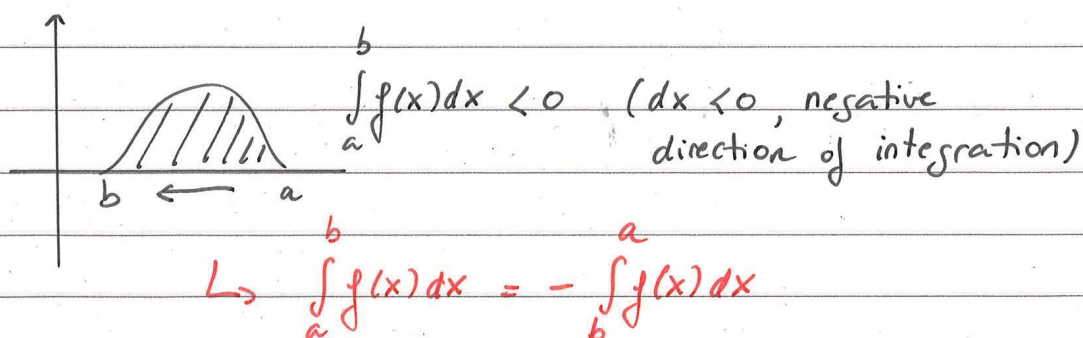 ∫_a^b f(x)dx < 0 (dx < 0, negative
direction of integration)
b ← a
↳ ∫_a^b f(x)dx = - ∫_b^a f(x)dx